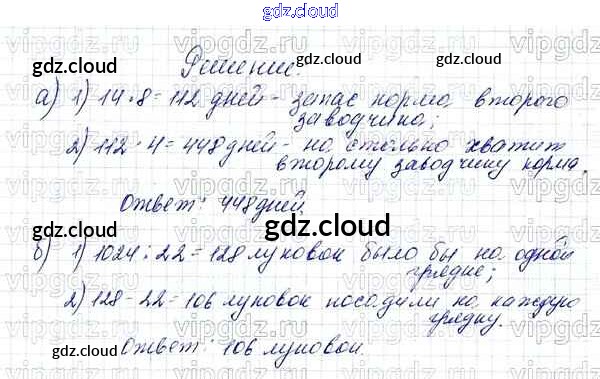 gdz.cloud
Решение.
gdz.cloud gdz.cloud
а) 1) 14·8=112 дней - запас корма второго
заводчика;
2) 112·4=448 дней - на столько хватит
второму заводчику корма.
Ответ: 448 дней.
gdz.cloud
б) 1) 1024:22=128 луковок было бы на одной
грядке;
2) 128-22=106 луковок посадили на каждую
грядку.
gdz.cloud gdz.cloud
Ответ: 106 луковок.
gdz.cloud